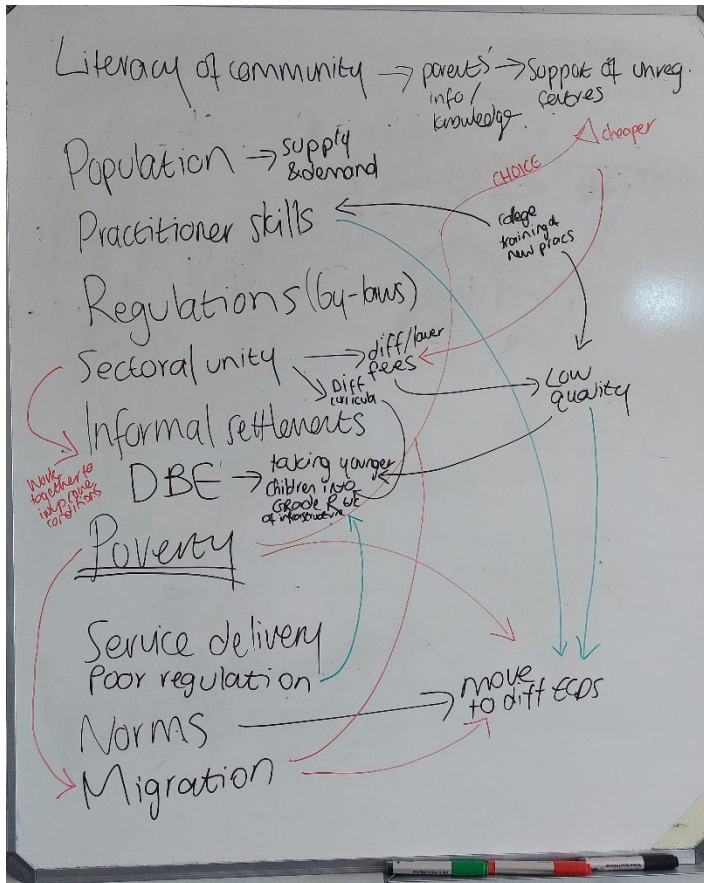 Literacy of community → parents' → Support of unreg.
info/
knowledge
centres
cheaper
Population → supply
& demand
CHOICE
Practitioner skills
college
training of
new pracs
Regulations (by-laws)
Sectoral unity → diff/lower
fees
Diff
curricula
Low
quality
Informal settlements
Work
together to
improve
conditions
DBE → taking younger
children into
Grade R
of infrastructure
Poverty
Service delivery
Poor regulation
Norms → move
to diff ECDs
Migration